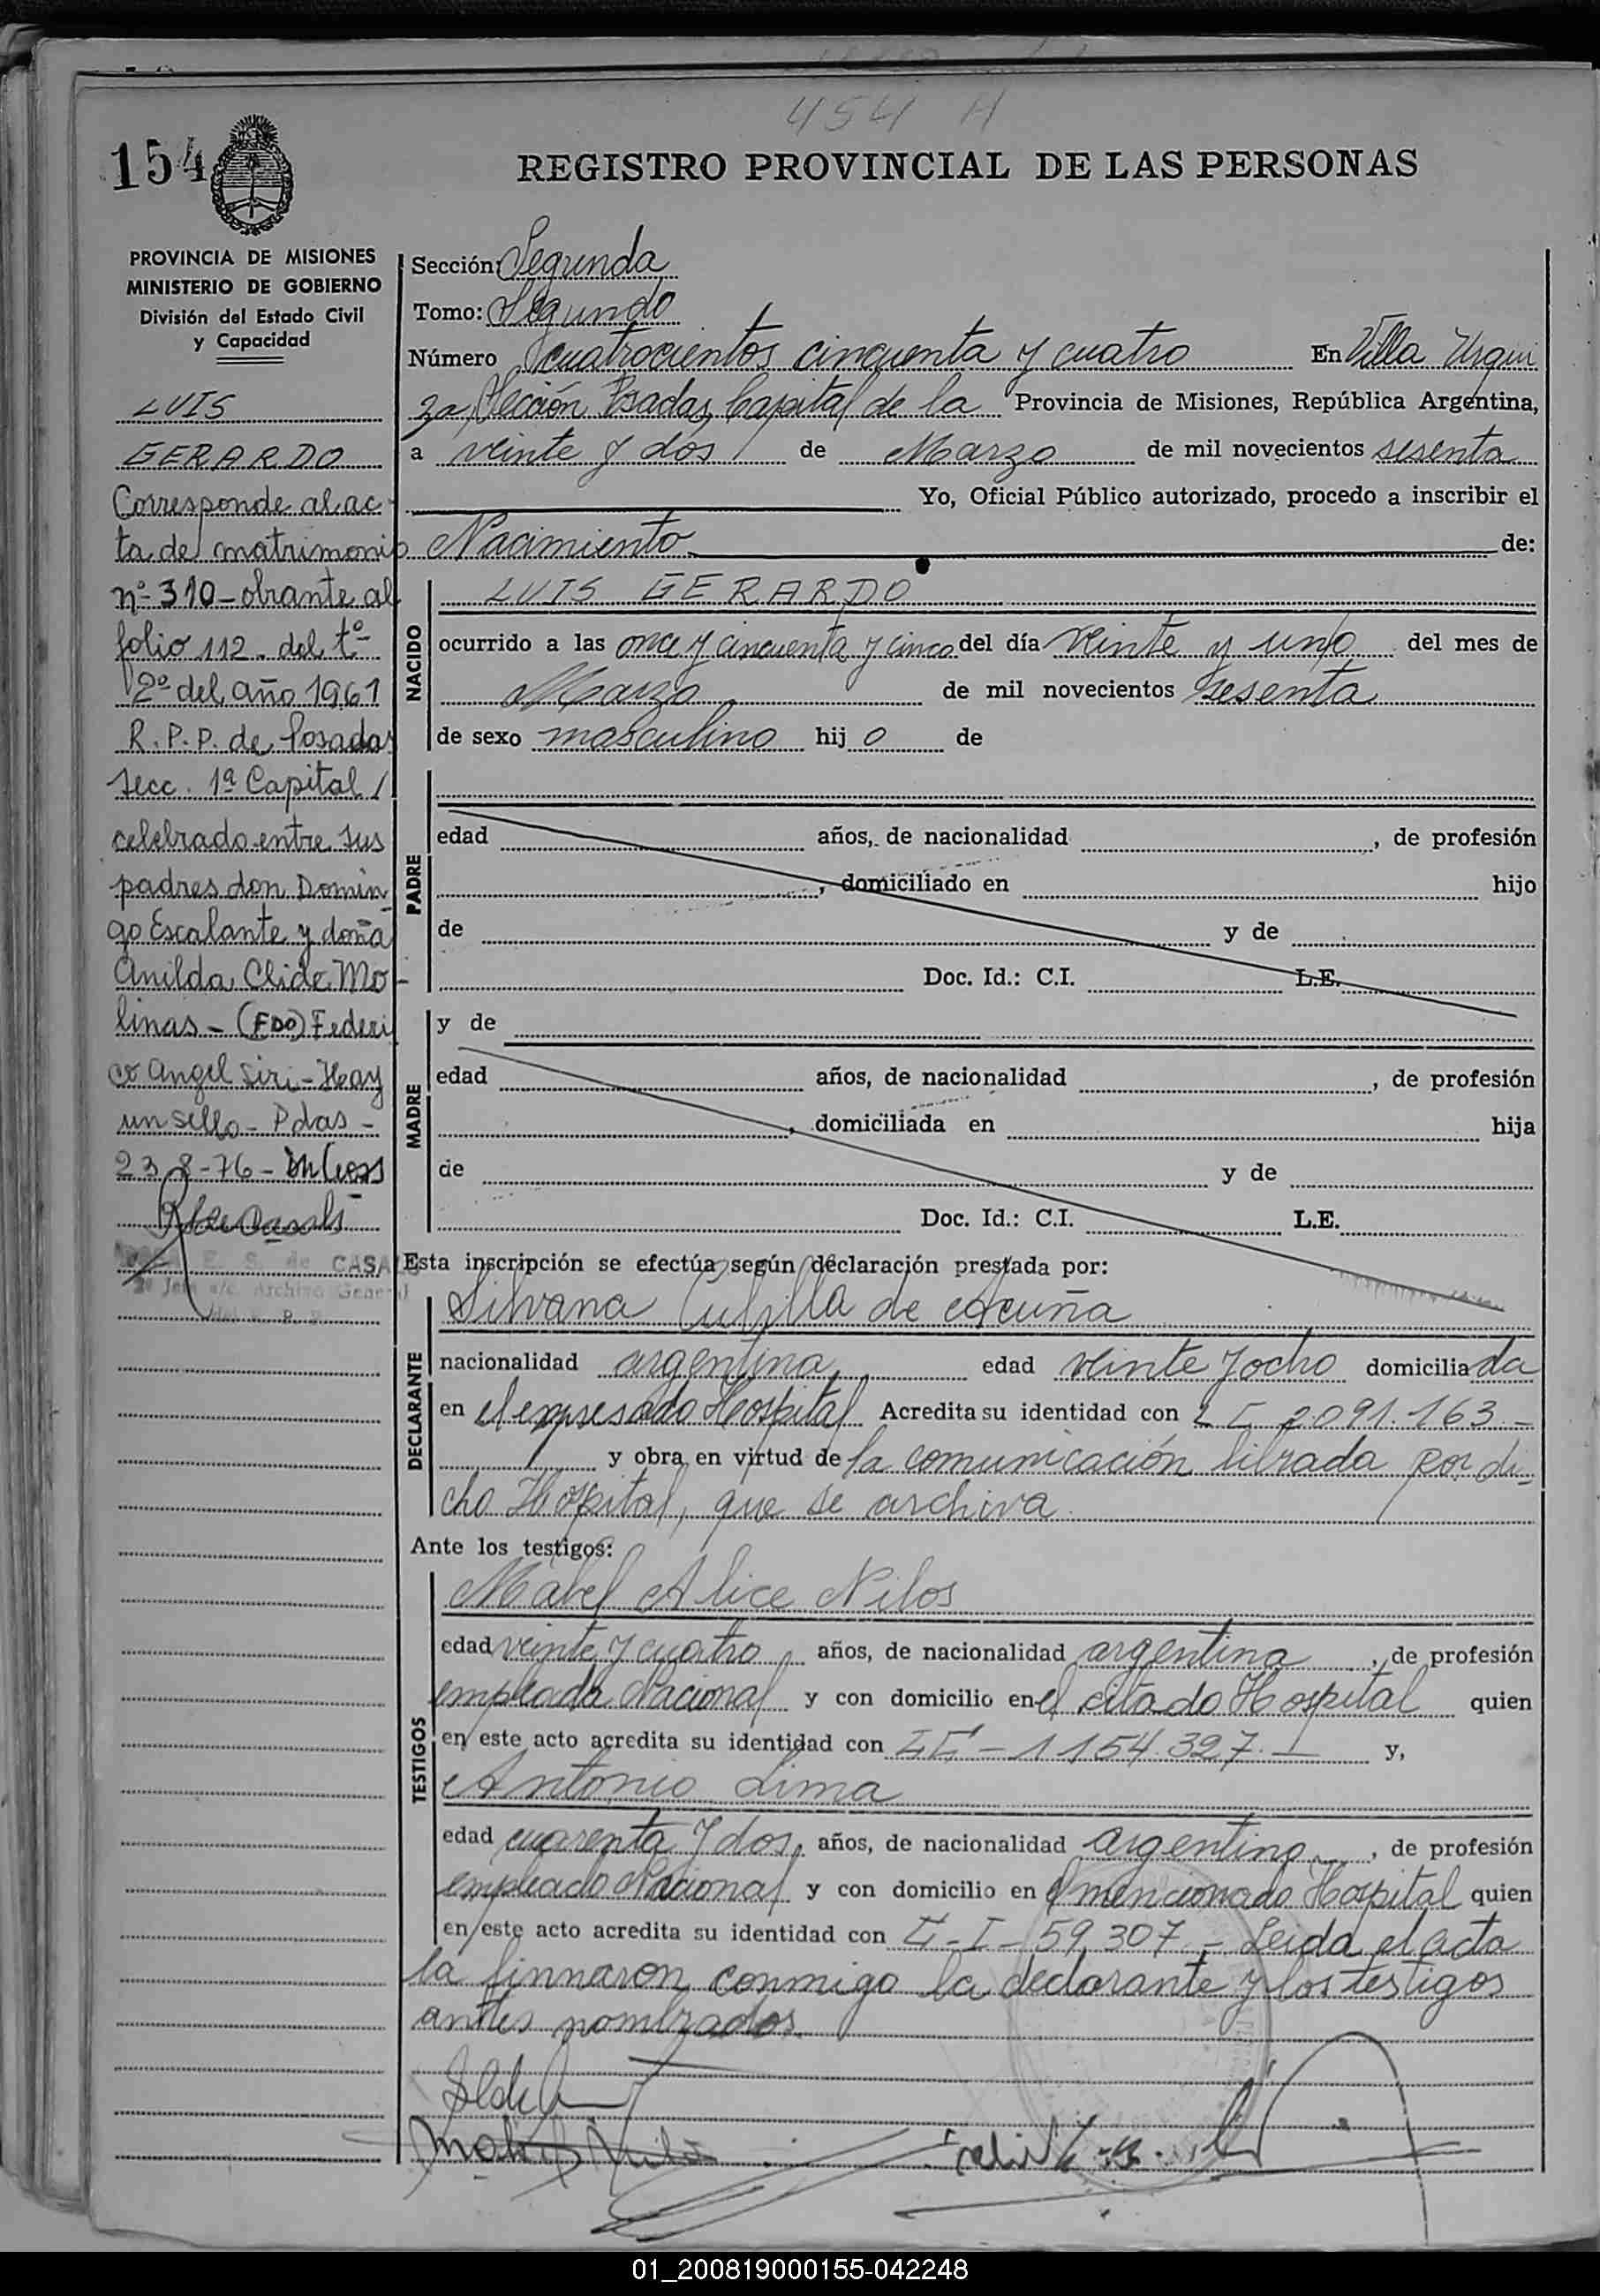 454 A
154
REGISTRO PROVINCIAL DE LAS PERSONAS
PROVINCIA DE MISIONES
MINISTERIO DE GOBIERNO
División del Estado Civil
y Capacidad
LUIS
GERARDO
Corresponde al ac-
ta de matrimonio
nº 310 - obrante al
folio 112 - del tº
2º del año 1961
R.P.P. de Posadas
secc. 1ª Capital /
celebrado entre sus
padres don Domin
go Escalante y doña
Anilda Clide Mo-
linas - (FDO) Federi
co Angel Siri - Hay
un sello - Pdas -
23-8-76 -
E. S. de CASALS
Jefe a/c. Archivo General
del R. P. P.
Sección: Segunda
Tomo: Segundo
Número cuatrocientos cincuenta y cuatro En Villa Urqui
za, Sección Posadas, Capital de la Provincia de Misiones, República Argentina,
a veinte y dos de Marzo de mil novecientos sesenta
Yo, Oficial Público autorizado, procedo a inscribir el
Nacimiento de:
NACIDO
LUIS GERARDO
ocurrido a las once y cincuenta y cinco del día veinte y uno del mes de
Marzo de mil novecientos sesenta
de sexo masculino hij o de
PADRE
edad años, de nacionalidad , de profesión
, domiciliado en hijo
de y de
Doc. Id.: C.I. L.E.
MADRE
y de
edad años, de nacionalidad , de profesión
, domiciliada en hija
de y de
Doc. Id.: C.I. L.E.
Esta inscripción se efectúa según declaración prestada por:
DECLARANTE
Silvana Cubilla de Acuña
nacionalidad argentina edad veinte y ocho domicilia da
en el expresado Hospital Acredita su identidad con L C 2.091.163 -
y obra en virtud de la comunicación librada por di-
cho Hospital, que se archiva.
Ante los testigos:
TESTIGOS
Mabel Alice Nilos
edad veinte y cuatro años, de nacionalidad argentina , de profesión
empleada Nacional y con domicilio en el citado Hospital quien
en este acto acredita su identidad con LC - 1154.327. - y,
Antonio Lima
edad cuarenta y dos años, de nacionalidad argentino , de profesión
empleado Nacional y con domicilio en el mencionado Hospital quien
en este acto acredita su identidad con C - I - 59.307 - Leida el acta
la firmaron conmigo la declarante y los testigos
antes nombrados.
01_200819000155-042248